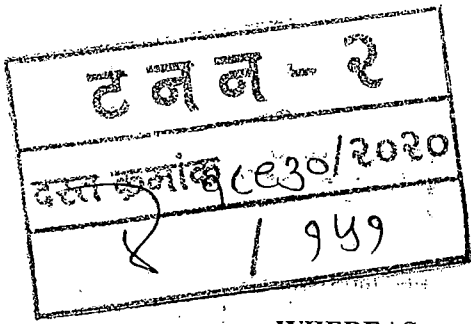 ट न न - २
दस्त क्रमांक १८९३०/२०२०
४ / १५१
WHEREAS